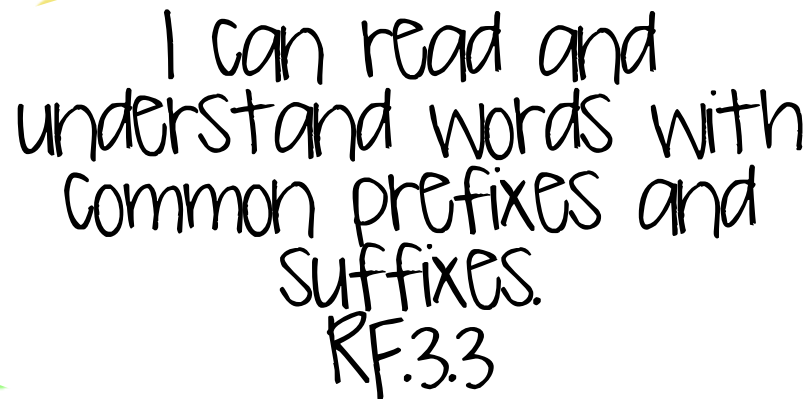 I can read and
understand words with
common prefixes and
suffixes.
RF.3.3